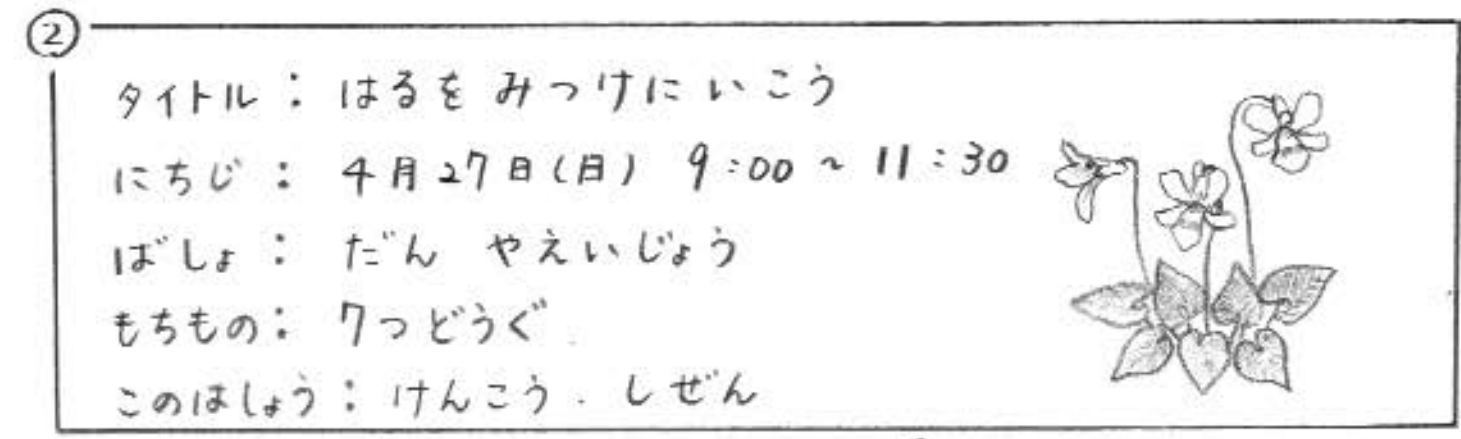 ②
タイトル：はるを みつけに いこう
にちじ：4月27日(日) 9:00～11:30
ばしょ：だん やえいじょう
もちもの：7つどうぐ
このはしょう：けんこう．しぜん